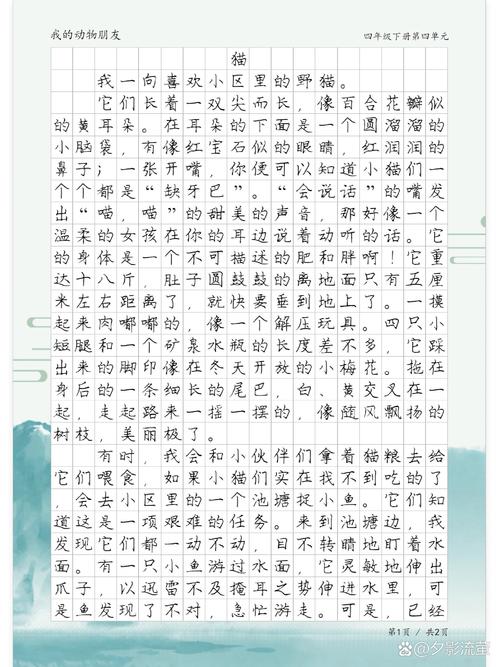 我的动物朋友
四年级下册第四单元
猫
我一向喜欢小区里的野猫。
它们长着一双尖而长，像百合花瓣似
的黄耳朵。在耳朵的下面是一个圆溜溜的
小脑袋，有像红宝石似的眼睛，红润润的
鼻子；一张开嘴，你便可以知道小猫们一
个个都是“缺牙巴”。“会说话”的嘴发
出“喵，喵”的甜美的声音，那好像一个
温柔的女孩在你的耳边说着动听的话。它
的身体是一个不可描述的肥和胖啊！它重
达十八斤，肚子圆鼓鼓的离地面只有五厘
米左右距离了，就快要垂到地上了。一摸
起来肉嘟嘟的，像一个解压玩具。四只小
短腿和一个矿泉水瓶的长度差不多，它踩
出来的脚印像在冬天开放的小梅花。拖在
身后的一条细长的尾巴，白、黄交叉在一
起，走起路来一摇一摆的，像随风飘扬的
树枝，美丽极了。
有时，我会和小伙伴们拿着猫粮去给
它们喂食，如果小猫们实在找不到吃的了
，会去小区里的一个池塘捉小鱼。它们知
道这是一项艰难的任务。来到池塘边，我
发现它们都一动不动，目不转睛地盯着水
面。有一只小鱼游过水面，它灵敏地伸出
爪子，以迅雷不及掩耳之势伸进水里，可
是鱼发现了不对，急忙游走。可是，已经
第1页 / 共2页
@夕影流萤